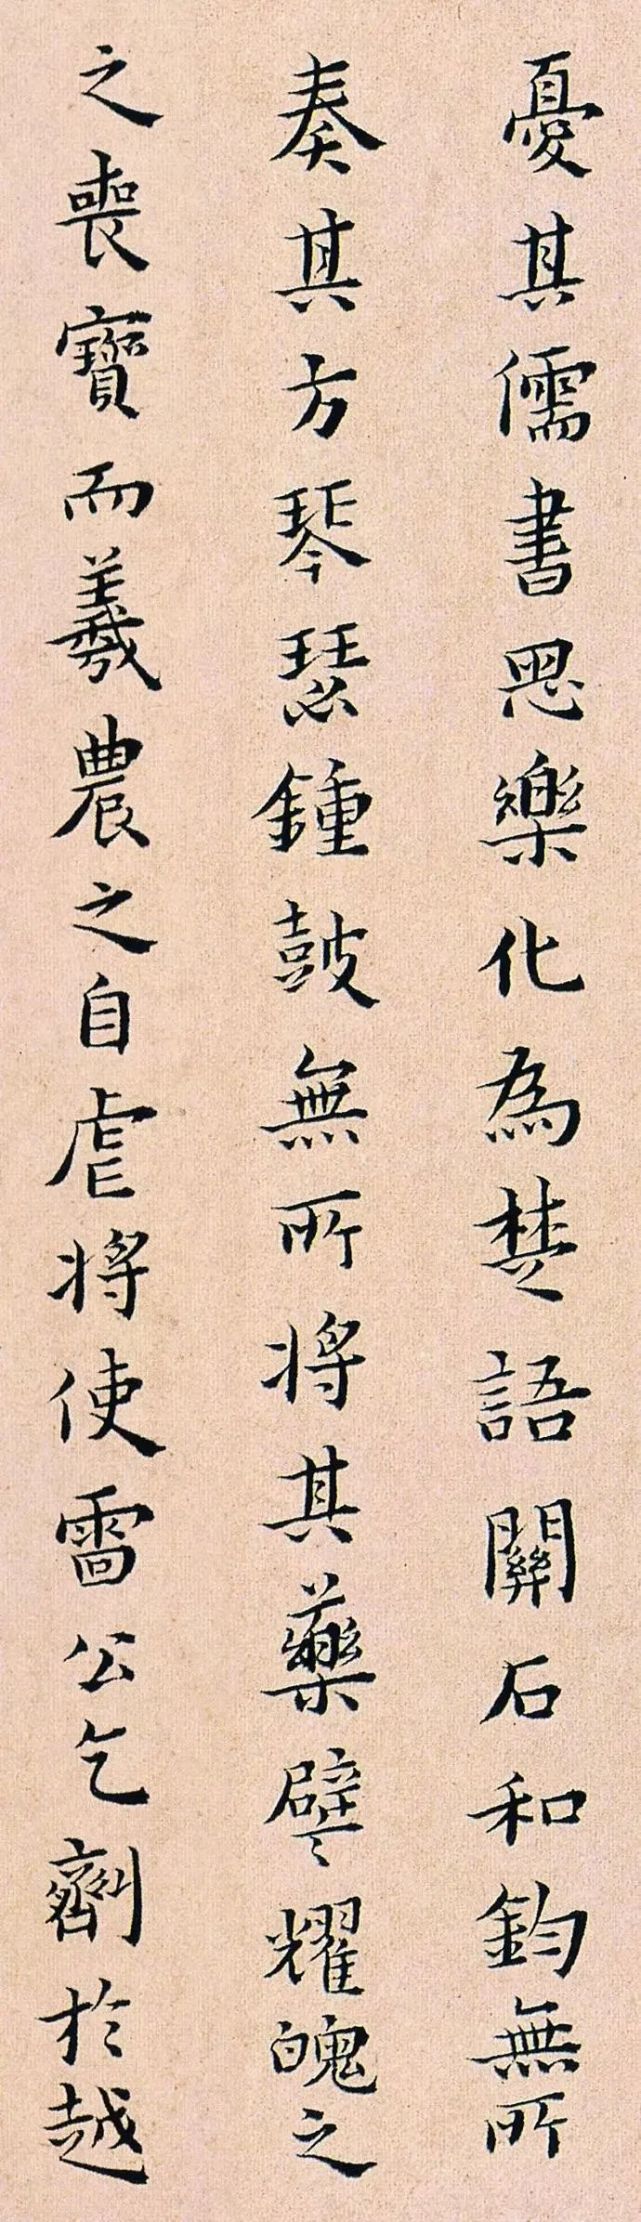 憂其儒書思樂化為楚語關石和鈞無所
奏其方琴瑟鍾皷無所將其藥譬耀魄之
之喪寶而羲農之自虐將使雷公乞劑於越